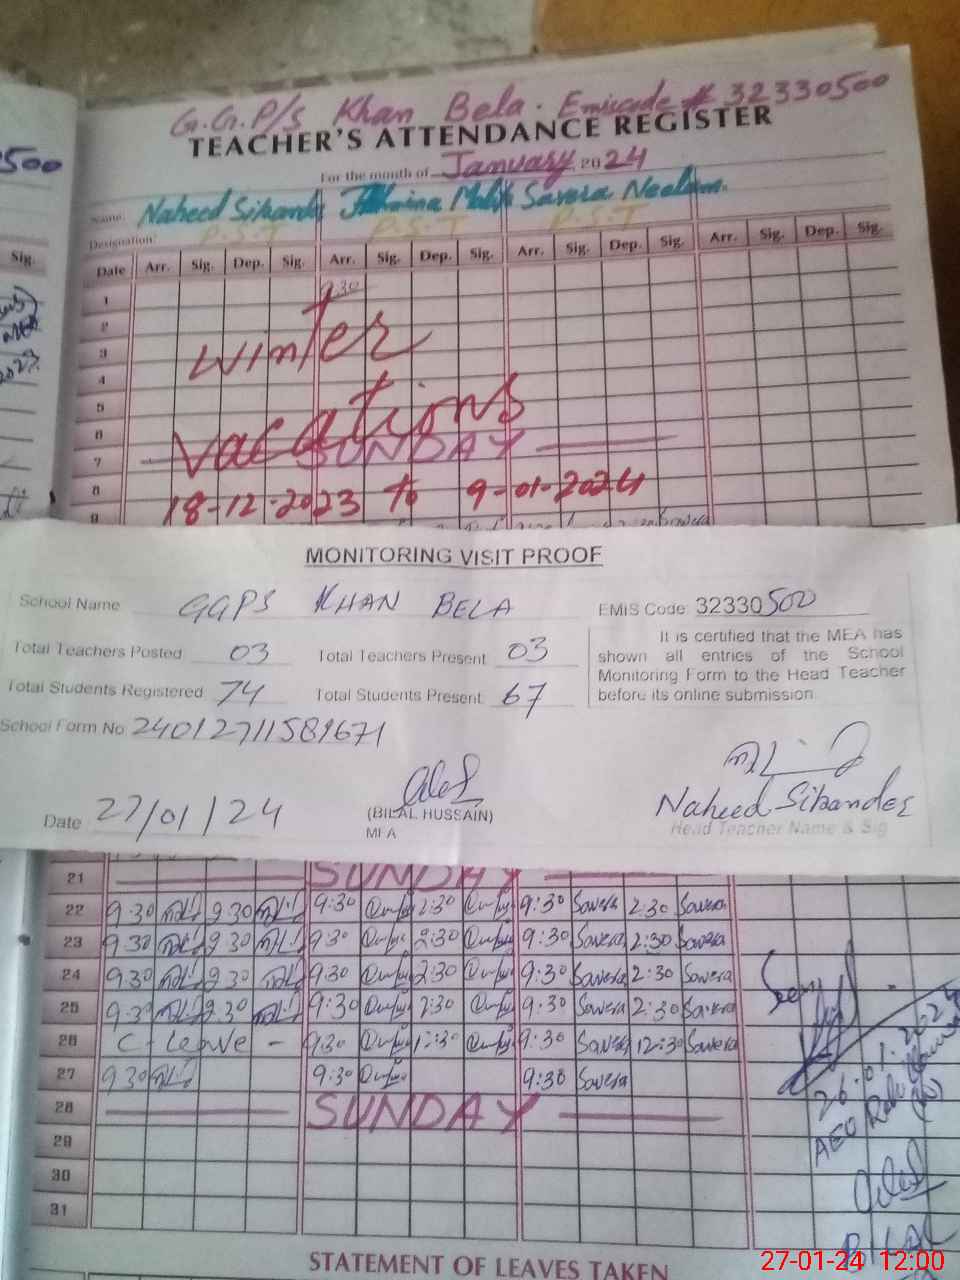 G.G.P/S Khan Bela. Emiscode # 32330500
TEACHER'S ATTENDANCE REGISTER
For the month of January, 2024
500
Name: Naheed Sikander Malik Savera Neelam
Designation: P.S.T P.S.T P.S.T
Sig. Date Arr. Sig. Dep. Sig. Arr. Sig. Dep. Sig. Arr. Sig. Dep. Sig. Arr. Sig. Dep. Sig.
1 9:30
2
3 Winter
4
5
6 vacations
7 SUNDAY
8 18-12-2023 to 9-01-2024
9
MONITORING VISIT PROOF
School Name GGPS KHAN BELA EMIS Code: 32330500
Total Teachers Posted 03 Total Teachers Present 03
Total Students Registered 74 Total Students Present 67
School Form No 24012711589671
It is certified that the MEA has
shown all entries of the School
Monitoring Form to the Head Teacher
before its online submission.
Date 27/01/24 (BILAL HUSSAIN)
MEA
Naheed Sikander
Head Teacher Name & Sig
21 SUNDAY
22 9:30 2:30 9:30 2:30 9:30 Savera 2:30 Savera
23 9:30 2:30 9:30 2:30 9:30 Savera 2:30 Savera
24 9:30 2:30 9:30 2:30 9:30 Savera 2:30 Savera
25 9:30 2:30 9:30 2:30 9:30 Savera 2:30 Savera
26 C-leave - 9:30 12:30 9:30 Savera 12:30 Savera
27 9:30 9:30 9:30 Savera
28 SUNDAY
29
30
31
Seen
26.01.2024
AEO
BILAL
STATEMENT OF LEAVES TAKEN
27-01-24 12:00